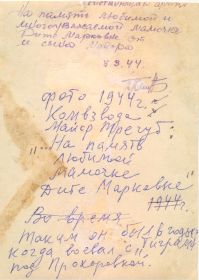 Действующая армия
На память любимой и
многоуважаемой мамочке
Диве Марковне от
и сына Майора
8.3.44.
Фото 1944 г.
Комвзвода
Майор Тречуб:
"На память
Любимой
Мамочке
Диве Марковне"
1944 г.
Во время
Таким он был в годы
когда воевал с "тиграми"
под Прохоровкой.